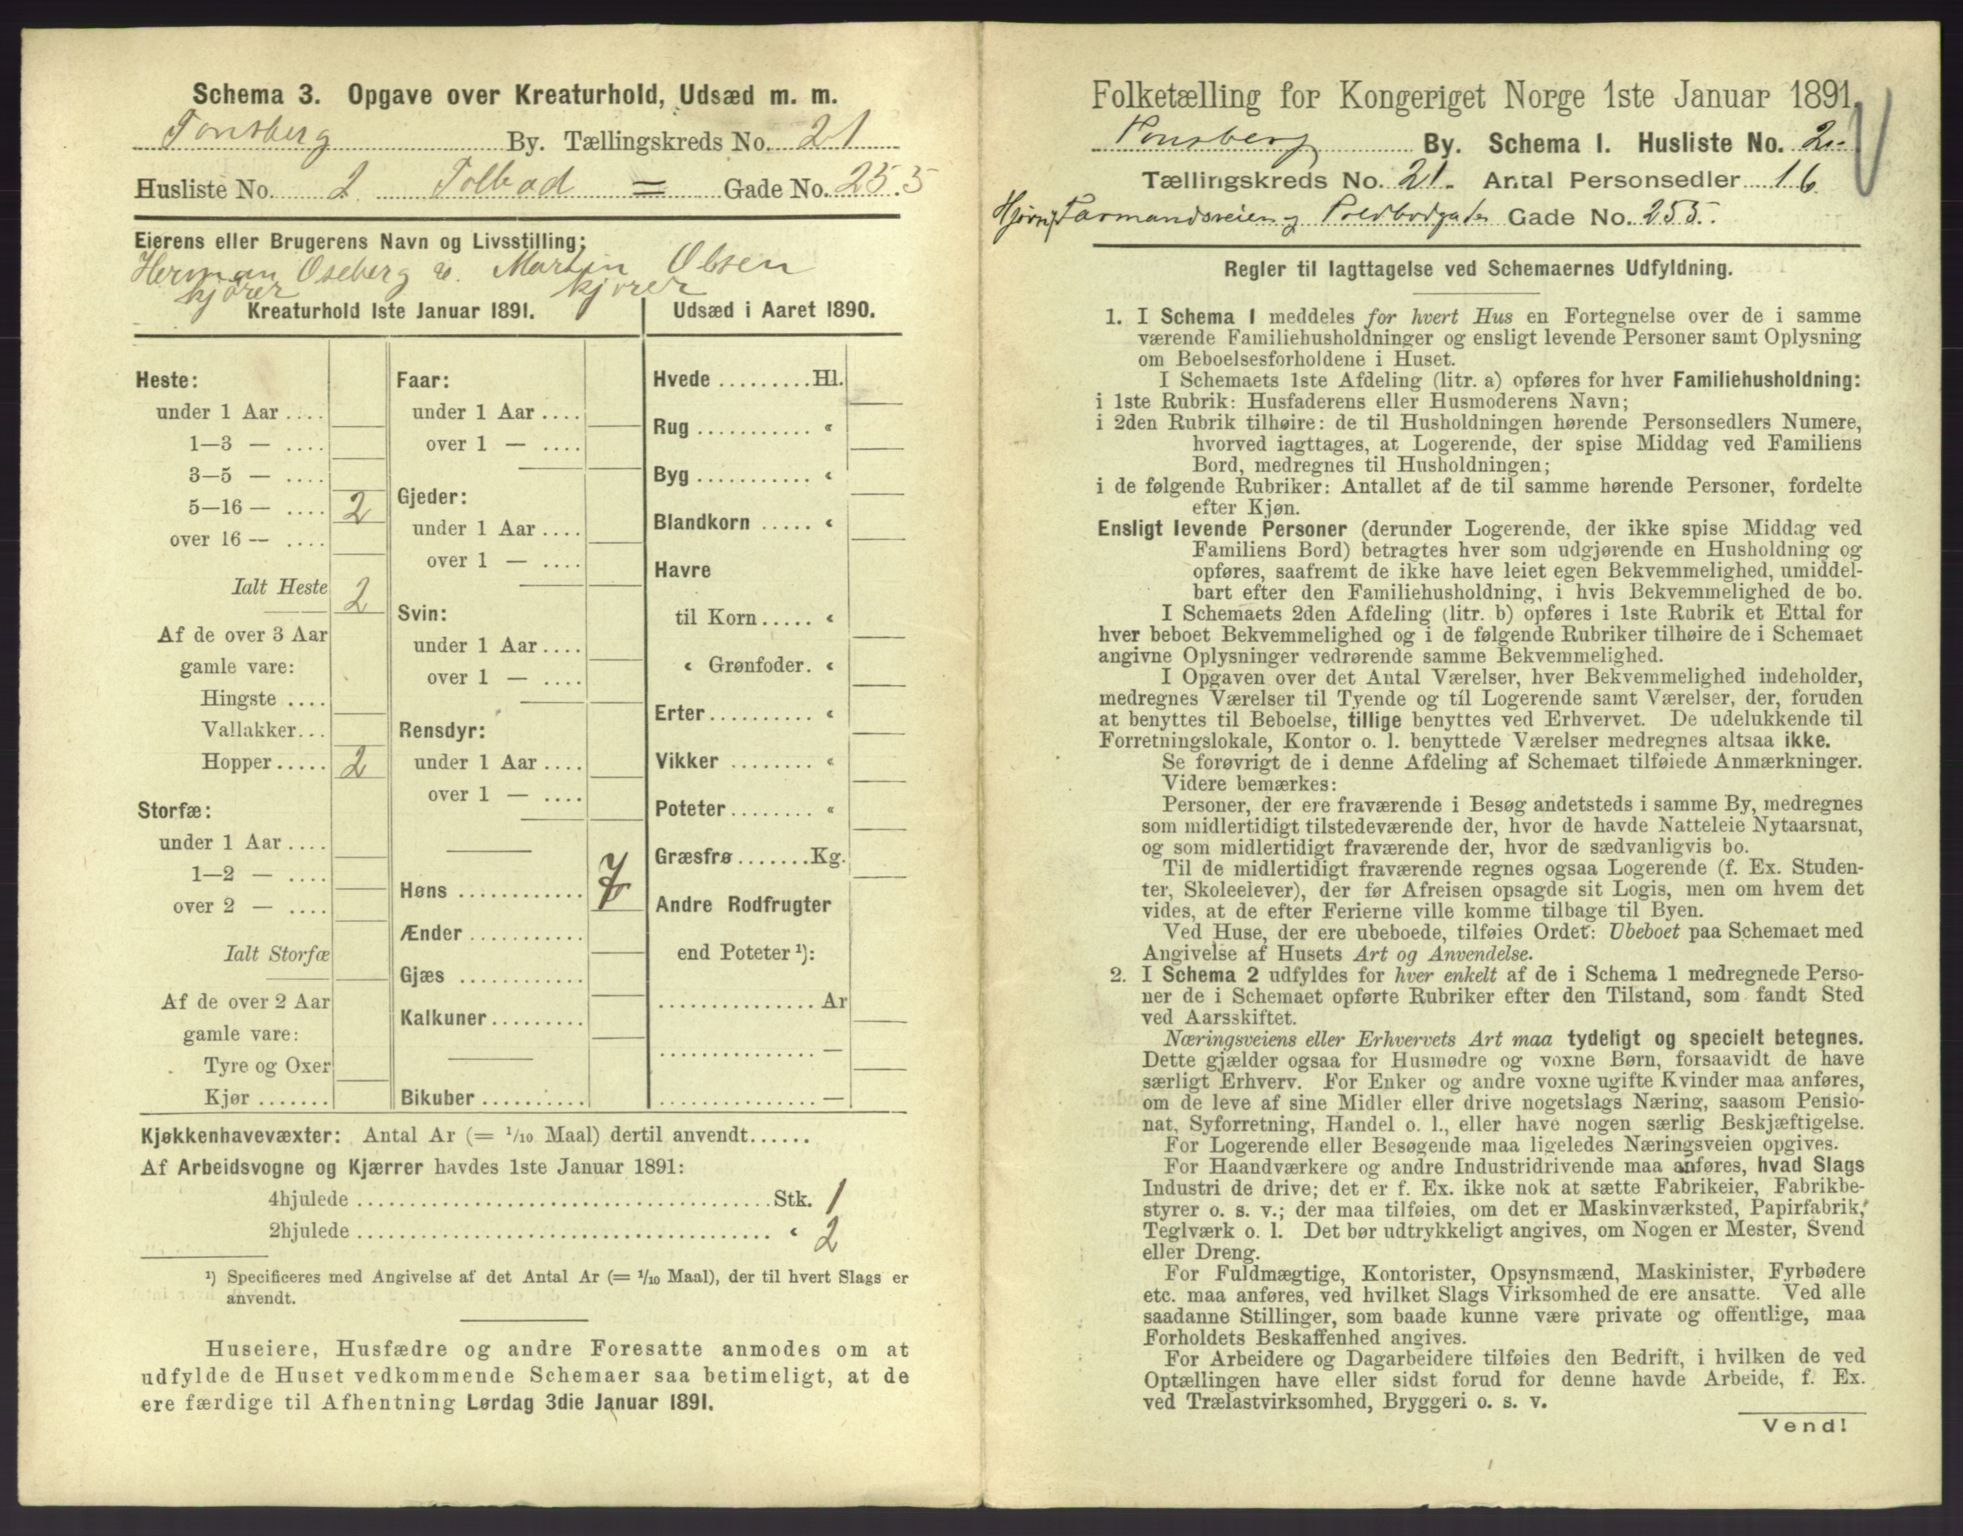 Schema 3. Opgave over Kreaturhold, Udsæd m. m.
Tønsberg By. Tællingskreds No. 21
Husliste No. 2 Tolbod = Gade No. 255
Eierens eller Brugerens Navn og Livsstilling:
Herman Oseberg & Martin Olsen
kjører kjører
Kreaturhold 1ste Januar 1891.
Heste:
under 1 Aar ....
1—3 — ....
3—5 — ....
5—16 — .... 2
over 16 — ....
Ialt Heste 2
Af de over 3 Aar
gamle vare:
Hingste ....
Vallakker...
Hopper ..... 2
Storfæ:
under 1 Aar ....
1—2 — ....
over 2 — ....
Ialt Storfæ
Af de over 2 Aar
gamle vare:
Tyre og Oxer
Kjør .......
Faar:
under 1 Aar ....
over 1 — ....
Gjeder:
under 1 Aar ....
over 1 — ....
Svin:
under 1 Aar ....
over 1 — ....
Rensdyr:
under 1 Aar ....
over 1 — ....
Høns ............ 7
Ænder ...........
Gjæs ............
Kalkuner.........
Bikuber ..........
Udsæd i Aaret 1890.
Hvede .........Hl.
Rug ........... «
Byg ........... «
Blandkorn ..... «
Havre
til Korn..... «
« Grønfoder. «
Erter.......... «
Vikker ........ «
Poteter ........ «
Græsfrø .......Kg.
Andre Rodfrugter
end Poteter ¹):
............... Ar
............... —
............... —
Kjøkkenhavevæxter: Antal Ar (= 1/10 Maal) dertil anvendt......
Af Arbeidsvogne og Kjærrer havdes 1ste Januar 1891:
4hjulede ........................................Stk. 1
2hjulede ........................................ « 2
¹) Specificeres med Angivelse af det Antal Ar (= 1/10 Maal), der til hvert Slags er
anvendt.
Huseiere, Husfædre og andre Foresatte anmodes om at
udfylde de Huset vedkommende Schemaer saa betimeligt, at de
ere færdige til Afhentning Lørdag 3die Januar 1891.
Folketælling for Kongeriget Norge 1ste Januar 1891.
Tønsberg By. Schema I. Husliste No. 2.
Tællingskreds No. 21. Antal Personsedler 16
Farmandsveien og Toldbodgaden Gade No. 255.
Regler til Iagttagelse ved Schemaernes Udfyldning.
1. I Schema 1 meddeles for hvert Hus en Fortegnelse over de i samme
værende Familiehusholdninger og ensligt levende Personer samt Oplysning
om Beboelsesforholdene i Huset.
I Schemaets 1ste Afdeling (litr. a) opføres for hver Familiehusholdning:
i 1ste Rubrik: Husfaderens eller Husmoderens Navn;
i 2den Rubrik tilhøire: de til Husholdningen hørende Personsedlers Numere,
hvorved iagttages, at Logerende, der spise Middag ved Familiens
Bord, medregnes til Husholdningen;
i de følgende Rubriker: Antallet af de til samme hørende Personer, fordelte
efter Kjøn.
Ensligt levende Personer (derunder Logerende, der ikke spise Middag ved
Familiens Bord) betragtes hver som udgjørende en Husholdning og
opføres, saafremt de ikke have leiet egen Bekvemmelighed, umiddel-
bart efter den Familiehusholdning, i hvis Bekvemmelighed de bo.
I Schemaets 2den Afdeling (litr. b) opføres i 1ste Rubrik et Ettal for
hver beboet Bekvemmelighed og i de følgende Rubriker tilhøire de i Schemaet
angivne Oplysninger vedrørende samme Bekvemmelighed.
I Opgaven over det Antal Værelser, hver Bekvemmelighed indeholder,
medregnes Værelser til Tyende og til Logerende samt Værelser, der, foruden
at benyttes til Beboelse, tillige benyttes ved Erhvervet. De udelukkende til
Forretningslokale, Kontor o. l. benyttede Værelser medregnes altsaa ikke.
Se forøvrigt de i denne Afdeling af Schemaet tilføiede Anmærkninger.
Videre bemærkes:
Personer, der ere fraværende i Besøg andetsteds i samme By, medregnes
som midlertidigt tilstedeværende der, hvor de havde Natteleie Nytaarsnat,
og som midlertidigt fraværende der, hvor de sædvanligvis bo.
Til de midlertidigt fraværende regnes ogsaa Logerende (f. Ex. Studen-
ter, Skoleelever), der før Afreisen opsagde sit Logis, men om hvem det
vides, at de efter Ferierne ville komme tilbage til Byen.
Ved Huse, der ere ubeboede, tilføies Ordet: Ubeboet paa Schemaet med
Angivelse af Husets Art og Anvendelse.
2. I Schema 2 udfyldes for hver enkelt af de i Schema 1 medregnede Perso-
ner de i Schemaet opførte Rubriker efter den Tilstand, som fandt Sted
ved Aarsskiftet.
Næringsveiens eller Erhvervets Art maa tydeligt og specielt betegnes.
Dette gjælder ogsaa for Husmødre og voxne Børn, forsaavidt de have
særligt Erhverv. For Enker og andre voxne ugifte Kvinder maa anføres,
om de leve af sine Midler eller drive nogetslags Næring, saasom Pensio-
nat, Syforretning, Handel o. l., eller have nogen særlig Beskjæftigelse.
For Logerende eller Besøgende maa ligeledes Næringsveien opgives.
For Haandværkere og andre Industridrivende maa anføres, hvad Slags
Industri de drive; det er f. Ex. ikke nok at sætte Fabrikeier, Fabrikbe-
styrer o. s. v.; der maa tilføies, om det er Maskinværksted, Papirfabrik,
Teglværk o. l. Det bør udtrykkeligt angives, om Nogen er Mester, Svend
eller Dreng.
For Fuldmægtige, Kontorister, Opsynsmænd, Maskinister, Fyrbødere
etc. maa anføres, ved hvilket Slags Virksomhed de ere ansatte. Ved alle
saadanne Stillinger, som baade kunne være private og offentlige, maa
Forholdets Beskaffenhed angives.
For Arbeidere og Dagarbeidere tilføies den Bedrift, i hvilken de ved
Optællingen have eller sidst forud for denne havde Arbeide, f. Ex.
ved Trælastvirksomhed, Bryggeri o. s. v.
Vend!